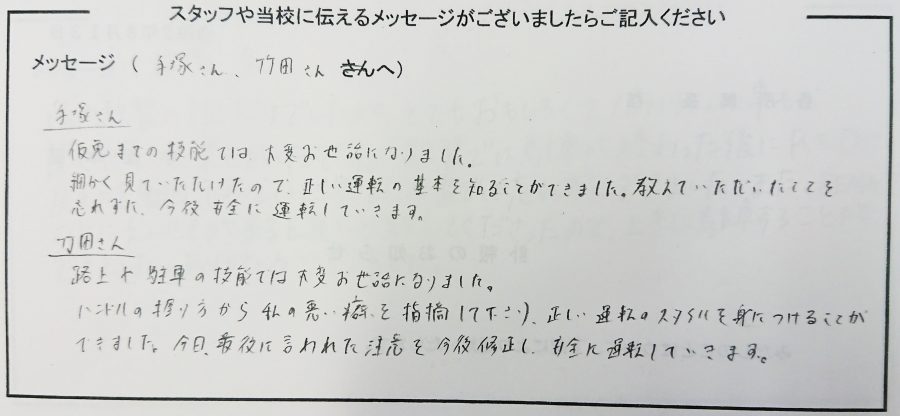 スタッフや当校に伝えるメッセージがございましたらご記入ください
メッセージ ( 手塚さん、竹田さん さんへ)
手塚さん
仮免までの技能では大変お世話になりました。
細かく見ていただけたので、正しい運転の基本を知ることができました。教えていただいたことを
忘れずに、今後安全に運転していきます。
竹田さん
路上や駐車の技能では大変お世話になりました。
ハンドルの握り方から私の悪い癖を指摘して下さり、正しい運転のスタイルを身につけることが
できました。今日、最後に言われた注意を今後修正し、安全に運転していきます。